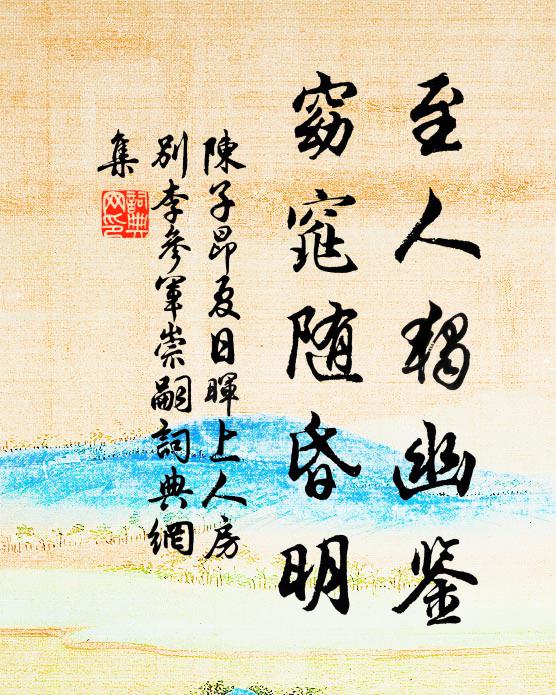 至人獨幽鑒
窈窕随昏明
陳子昂夏日暉上人房
別李參軍崇嗣詞典網
集
詞典网印